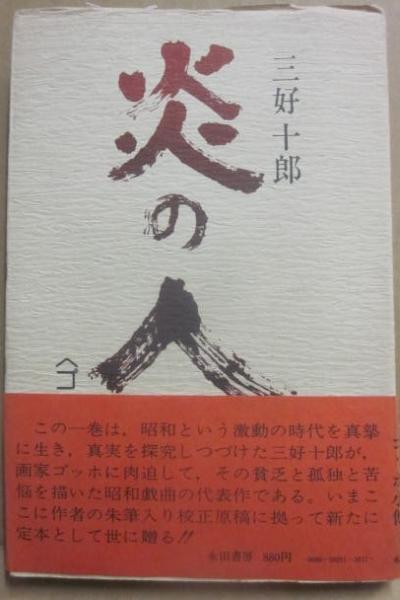 三好十郎
炎の人
この一巻は，昭和という激動の時代を真摯
に生き，真実を探究しつづけた三好十郎が，
画家ゴッホに肉迫して，その貧乏と孤独と苦
悩を描いた昭和戯曲の代表作である。いまこ
こに作者の朱筆入り校正原稿に拠って新たに
定本として世に贈る!!
永田書房 880円